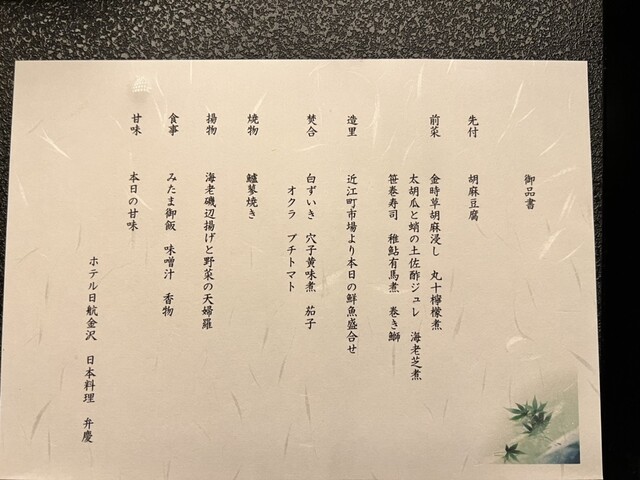 御品書
先付　胡麻豆腐
前菜　金時草胡麻浸し　丸十檸檬煮
太胡瓜と蛸の土佐酢ジュレ　海老芝煮
笹巻寿司　稚鮎有馬煮　巻き鰤
造里　近江町市場より本日の鮮魚盛合せ
焚合　白ずいき　穴子黄味煮　茄子
オクラ　プチトマト
焼物　鱸蓼焼き
揚物　海老磯辺揚げと野菜の天婦羅
食事　みたま御飯　味噌汁　香物
甘味　本日の甘味
ホテル日航金沢　日本料理　弁慶